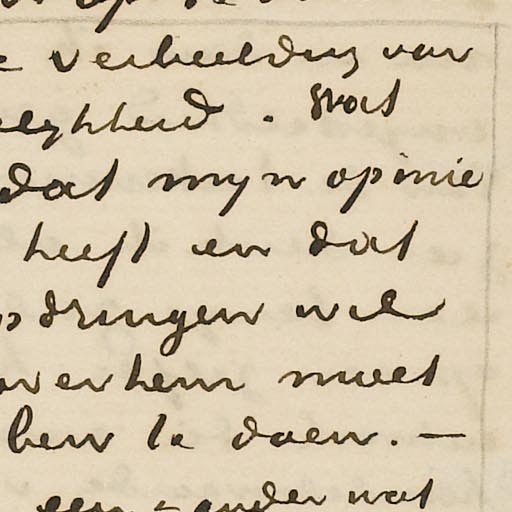 verbeelding van
elykheid. Wat
dat myn opinie
heeft en dat
opdringen wil
over hem moet
ben te doen. —
een - ander wat